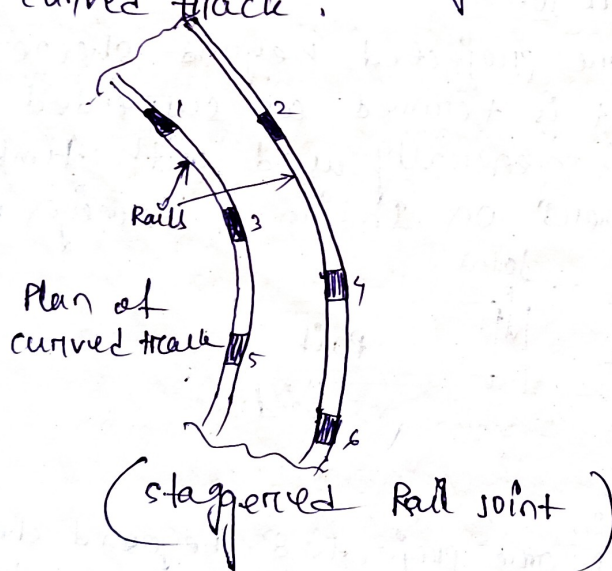 curved track.
1
2
Rails
3
4
Plan of
curved track
5
6
(staggerred Rail Joint)